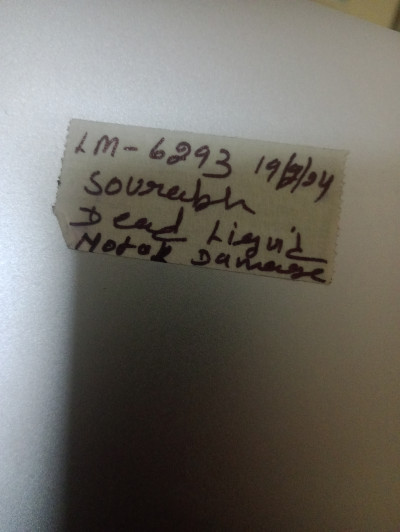 LM-6293 19/2/24
Sourabh
Dead Liquid
Damage